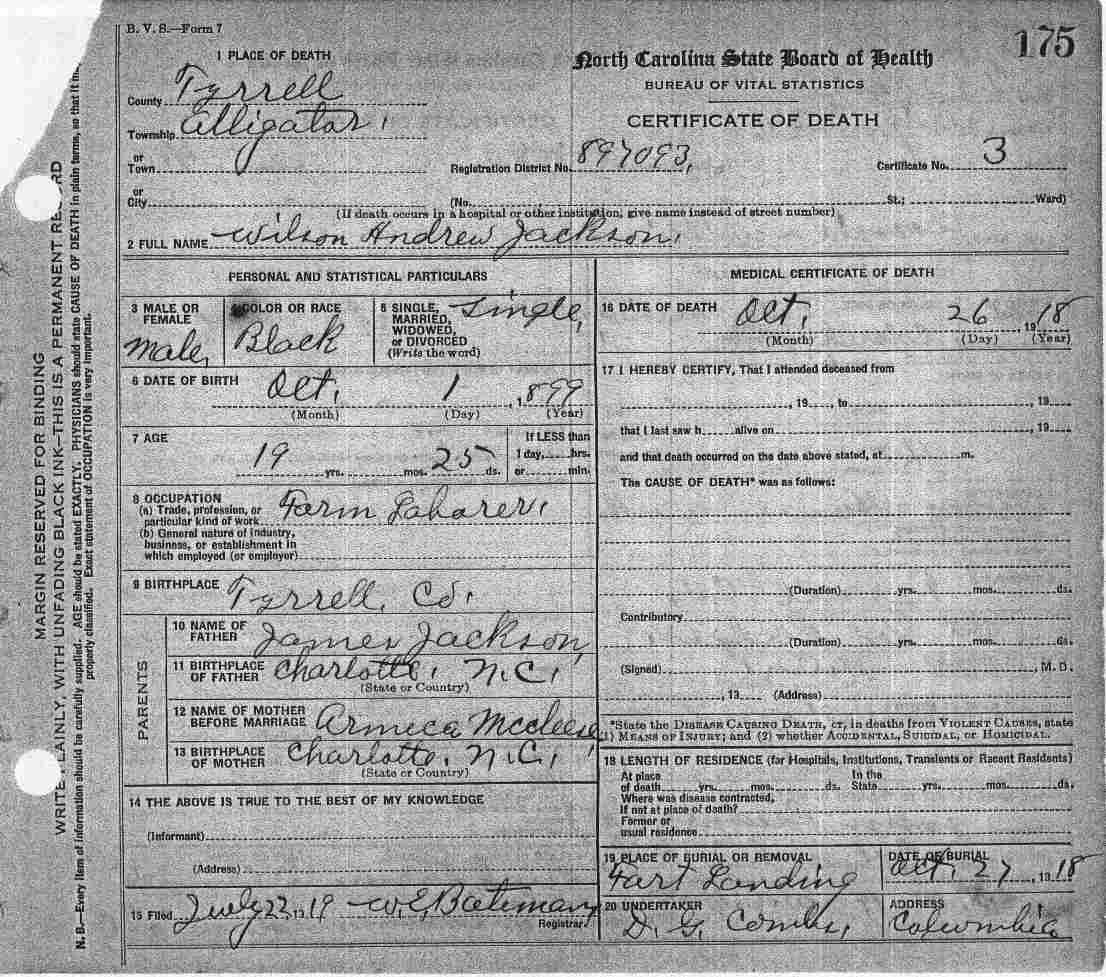 B. V. S.—Form 7
175
1 PLACE OF DEATH
North Carolina State Board of Health
BUREAU OF VITAL STATISTICS
CERTIFICATE OF DEATH
County Tyrrell
Township Alligator
or
Town
Registration District No. 897093,
Certificate No. 3
or
City
(No. St.; Ward)
(If death occurs in a hospital or other institution, give name instead of street number)
2 FULL NAME Wilson Andrew Jackson,
PERSONAL AND STATISTICAL PARTICULARS
3 MALE OR FEMALE
Male,
COLOR OR RACE
Black
5 SINGLE, MARRIED, WIDOWED, or DIVORCED
(Write the word)
Single,
6 DATE OF BIRTH
Oct, 1, 1899
(Month) (Day) (Year)
7 AGE
19 yrs. mos. 25 ds.
If LESS than
1 day, hrs.
or min.
8 OCCUPATION
(a) Trade, profession, or
particular kind of work Farm Laborer,
(b) General nature of industry,
business, or establishment in
which employed (or employer)
9 BIRTHPLACE Tyrrell, Co,
PARENTS
10 NAME OF
FATHER James Jackson,
11 BIRTHPLACE
OF FATHER Charlotte, N.C,
(State or Country)
12 NAME OF MOTHER
BEFORE MARRIAGE Armeca Mccleese
13 BIRTHPLACE
OF MOTHER Charlotte, N.C,
(State or Country)
14 THE ABOVE IS TRUE TO THE BEST OF MY KNOWLEDGE
(Informant)
(Address)
15 Filed July 22, 1919 W. E. Bateman
Registrar.
MEDICAL CERTIFICATE OF DEATH
16 DATE OF DEATH Oct, 26 1918
(Month) (Day) (Year)
17 I HEREBY CERTIFY, That I attended deceased from
, 19 , to , 19
that I last saw h alive on , 19
and that death occurred on the date above stated, at m.
The CAUSE OF DEATH* was as follows:
(Duration) yrs. mos. ds.
Contributory
(Duration) yrs. mos. ds.
(Signed) , M. D.
, 19 (Address)
*State the DISEASE CAUSING DEATH, or, in deaths from VIOLENT CAUSES, state
(1) MEANS OF INJURY; and (2) whether ACCIDENTAL, SUICIDAL, or HOMICIDAL.
18 LENGTH OF RESIDENCE (for Hospitals, Institutions, Transients or Recent Residents)
At place In the
of death yrs. mos. ds. State yrs. mos. ds.
Where was disease contracted,
If not at place of death?
Former or
usual residence
19 PLACE OF BURIAL OR REMOVAL
Fort Landing
DATE OF BURIAL
Oct, 27, 1918
20 UNDERTAKER
D. G. Combs,
ADDRESS
Columbia
MARGIN RESERVED FOR BINDING
WRITE PLAINLY, WITH UNFADING BLACK INK—THIS IS A PERMANENT RECORD
N. B.—Every item of information should be carefully supplied. AGE should be stated EXACTLY. PHYSICIANS should state CAUSE OF DEATH in plain terms, so that it may
properly classified. Exact statement of OCCUPATION is very important.